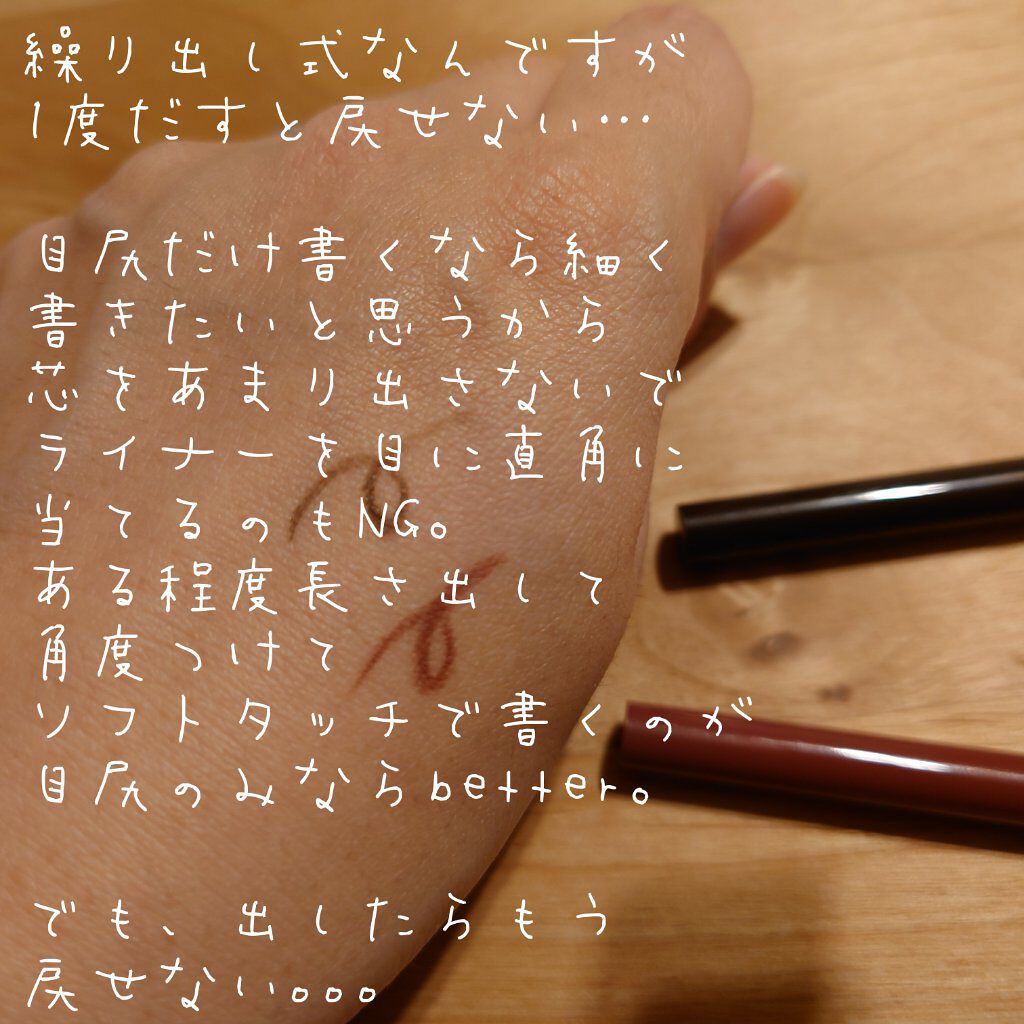 繰り出し式なんですが
1度だすと戻せない…
目尻だけ書くなら細く
書きたいと思うから
芯をあまり出さないで
ライナーを目に直角に
当てるのもNG。
ある程度長さ出して
角度つけて
ソフトタッチで書くのが
目尻のみならbetter。
でも、出したらもう
戻せない。。。